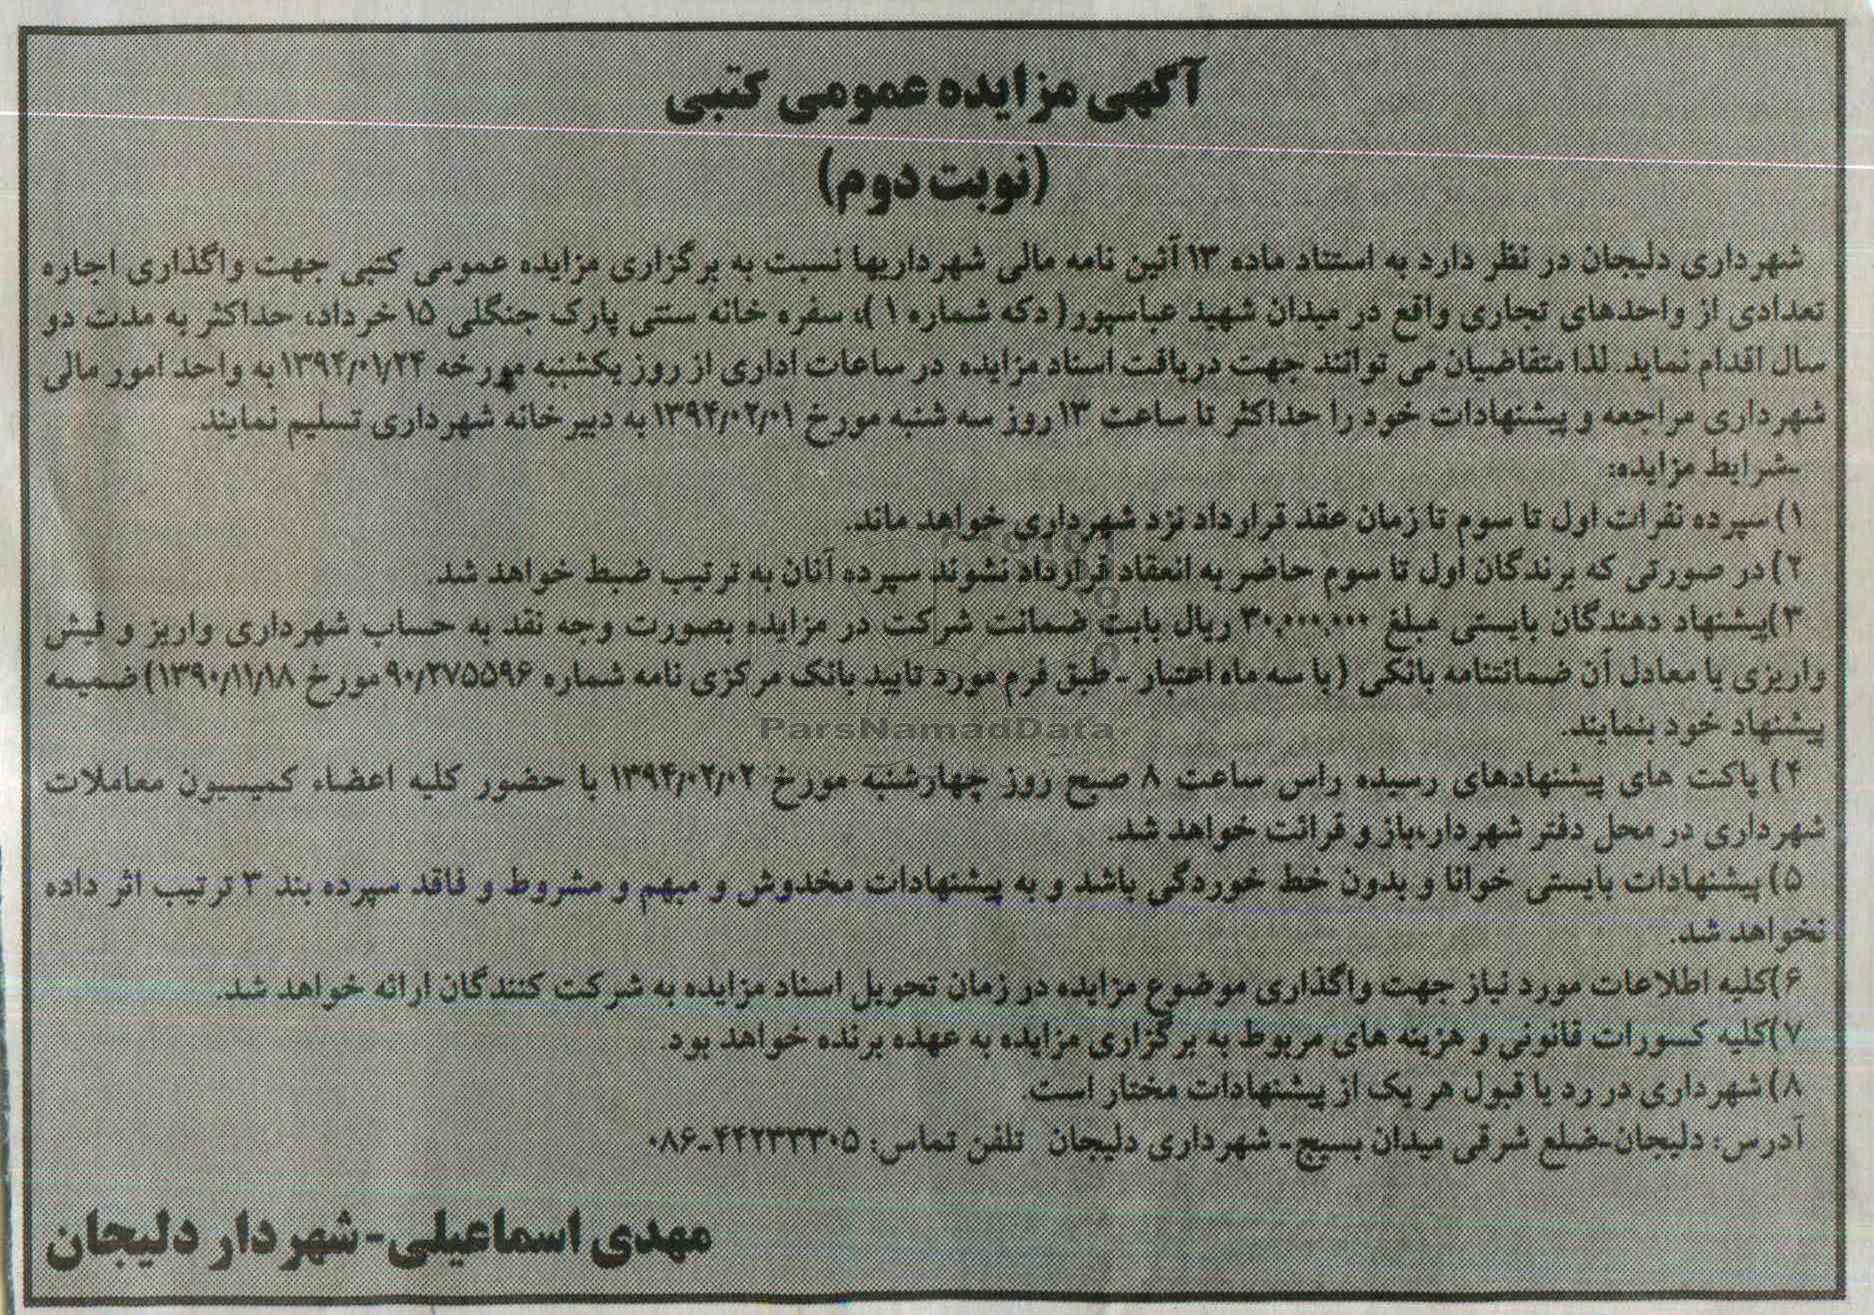 آگهی مزایده عمومی کتبی
(نوبت دوم)
شهرداری دلیجان در نظر دارد به استناد ماده ۱۳ آئین نامه مالی شهرداریها نسبت به برگزاری مزایده عمومی کتبی جهت واگذاری اجاره
تعدادی از واحدهای تجاری واقع در میدان شهید عباسپور( دکه شماره ۱)، سفره خانه سنتی پارک جنگلی ۱۵ خرداد، حداکثر به مدت دو
سال اقدام نماید. لذا متقاضیان می توانند جهت دریافت اسناد مزایده در ساعات اداری از روز یکشنبه مورخه ۱۳۹۴/۰۱/۲۴ به واحد امور مالی
شهرداری مراجعه و پیشنهادات خود را حداکثر تا ساعت ۱۳ روز سه شنبه مورخ ۱۳۹۴/۰۲/۰۱ به دبیرخانه شهرداری تسلیم نمایند.
-شرایط مزایده:
۱) سپرده نفرات اول تا سوم تا زمان عقد قرارداد نزد شهرداری خواهد ماند.
۲) در صورتی که برندگان اول تا سوم حاضر به انعقاد قرارداد نشوند سپرده آنان به ترتیب ضبط خواهد شد.
۳)پیشنهاد دهندگان بایستی مبلغ ۳۰,۰۰۰,۰۰۰ ریال بابت ضمانت شرکت در مزایده بصورت وجه نقد به حساب شهرداری واریز و فیش
واریزی یا معادل آن ضمانتنامه بانکی (با سه ماه اعتبار - طبق فرم مورد تایید بانک مرکزی نامه شماره ۹۰/۲۷۵۵۹۶ مورخ ۱۳۹۰/۱۱/۱۸) ضمیمه
پیشنهاد خود بنمایند.
ParsNamadData
۴) پاکت های پیشنهادهای رسیده راس ساعت ۸ صبح روز چهارشنبه مورخ ۱۳۹۴/۰۲/۰۲ با حضور کلیه اعضاء کمیسیون معاملات
شهرداری در محل دفتر شهردار،باز و قرائت خواهد شد.
۵) پیشنهادات بایستی خوانا و بدون خط خوردگی باشد و به پیشنهادات مخدوش و مبهم و مشروط و فاقد سپرده بند ۳ ترتیب اثر داده
نخواهد شد.
۶)کلیه اطلاعات مورد نیاز جهت واگذاری موضوع مزایده در زمان تحویل اسناد مزایده به شرکت کنندگان ارائه خواهد شد.
۷)کلیه کسورات قانونی و هزینه های مربوط به برگزاری مزایده به عهده برنده خواهد بود.
۸) شهرداری در رد یا قبول هر یک از پیشنهادات مختار است.
آدرس: دلیجان-ضلع شرقی میدان بسیج- شهرداری دلیجان تلفن تماس: ۴۴۲۳۳۳۰۵-۰۸۶
مهدی اسماعیلی-شهردار دلیجان